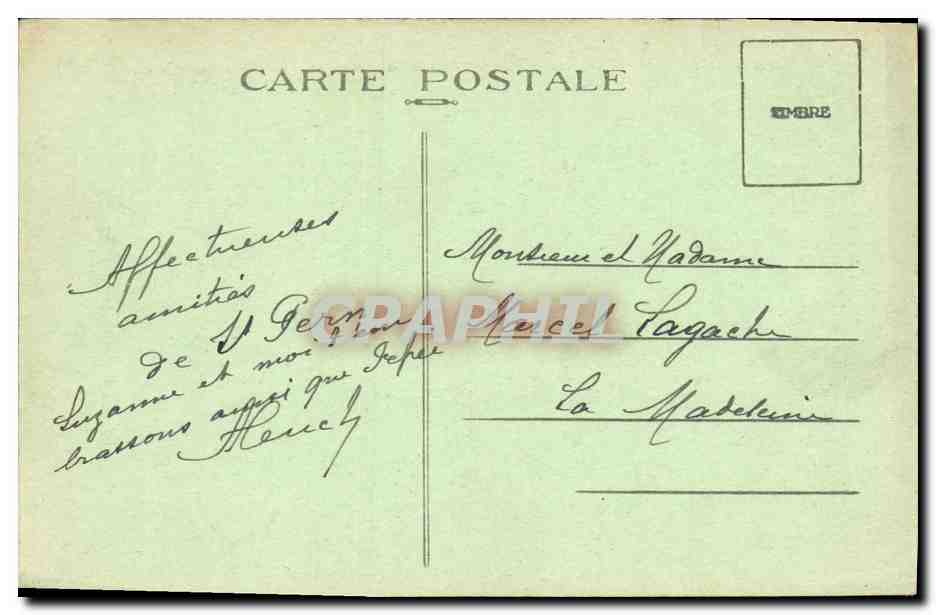 CARTE POSTALE
TIMBRE
Affectueuses
amitiés
de St Pern
Suzanne et moi
brassons aussi que
Monsieur et Madame
Marcel Lagache
La Madeleine
CPAPHIL